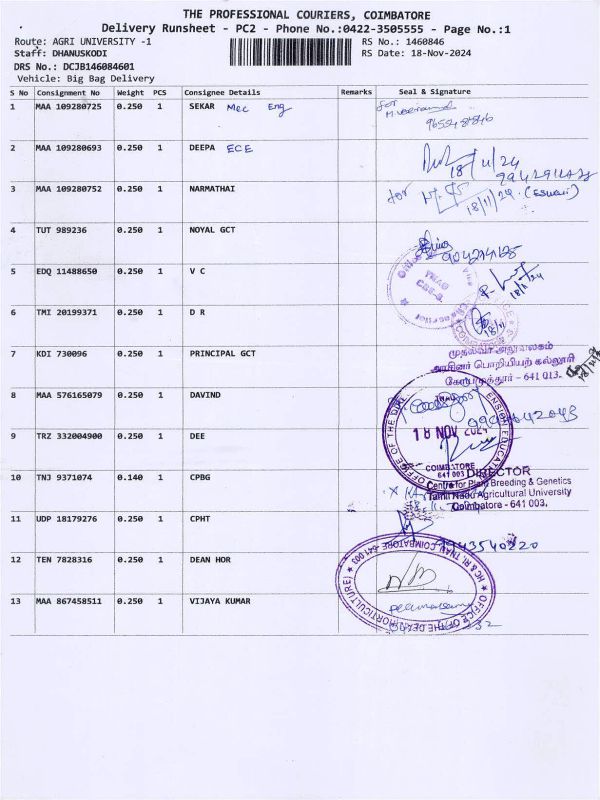 THE PROFESSIONAL COURIERS, COIMBATORE
Delivery Runsheet - PC2 - Phone No.:0422-3505555 - Page No.:1
Route: AGRI UNIVERSITY -1
RS No.: 1460846
Staff: DHANUSKODI
RS Date: 18-Nov-2024
DRS No.: DCJB146084601
Vehicle: Big Bag Delivery
S No Consignment No Weight PCS Consignee Details Remarks Seal & Signature
1 MAA 109280725 0.250 1 SEKAR Mec Eng for
2 MAA 109280693 0.250 1 DEEPA ECE 18/11/24
3 MAA 109280752 0.250 1 NARMATHAI for 18/11/24 (Eswari)
4 TUT 989236 0.250 1 NOYAL GCT
5 EDQ 11488650 0.250 1 V C 18/11/24
6 TMI 20199371 0.250 1 D R
7 KDI 730096 0.250 1 PRINCIPAL GCT
முதல்வர் அலுவலகம்
அரசினர் பொறியியற் கல்லூரி
கோயமுத்தூர் - 641 013.
8 MAA 576165079 0.250 1 DAVIND
18 NOV 2024
9 TRZ 332004900 0.250 1 DEE
COIMBATORE
641 003
DIRECTOR
10 TNJ 9371074 0.140 1 CPBG
Centre for Plant Breeding & Genetics
Tamil Nadu Agricultural University
Coimbatore - 641 003.
11 UDP 18179276 0.250 1 CPHT
12 TEN 7828316 0.250 1 DEAN HOR
13 MAA 867458511 0.250 1 VIJAYA KUMAR